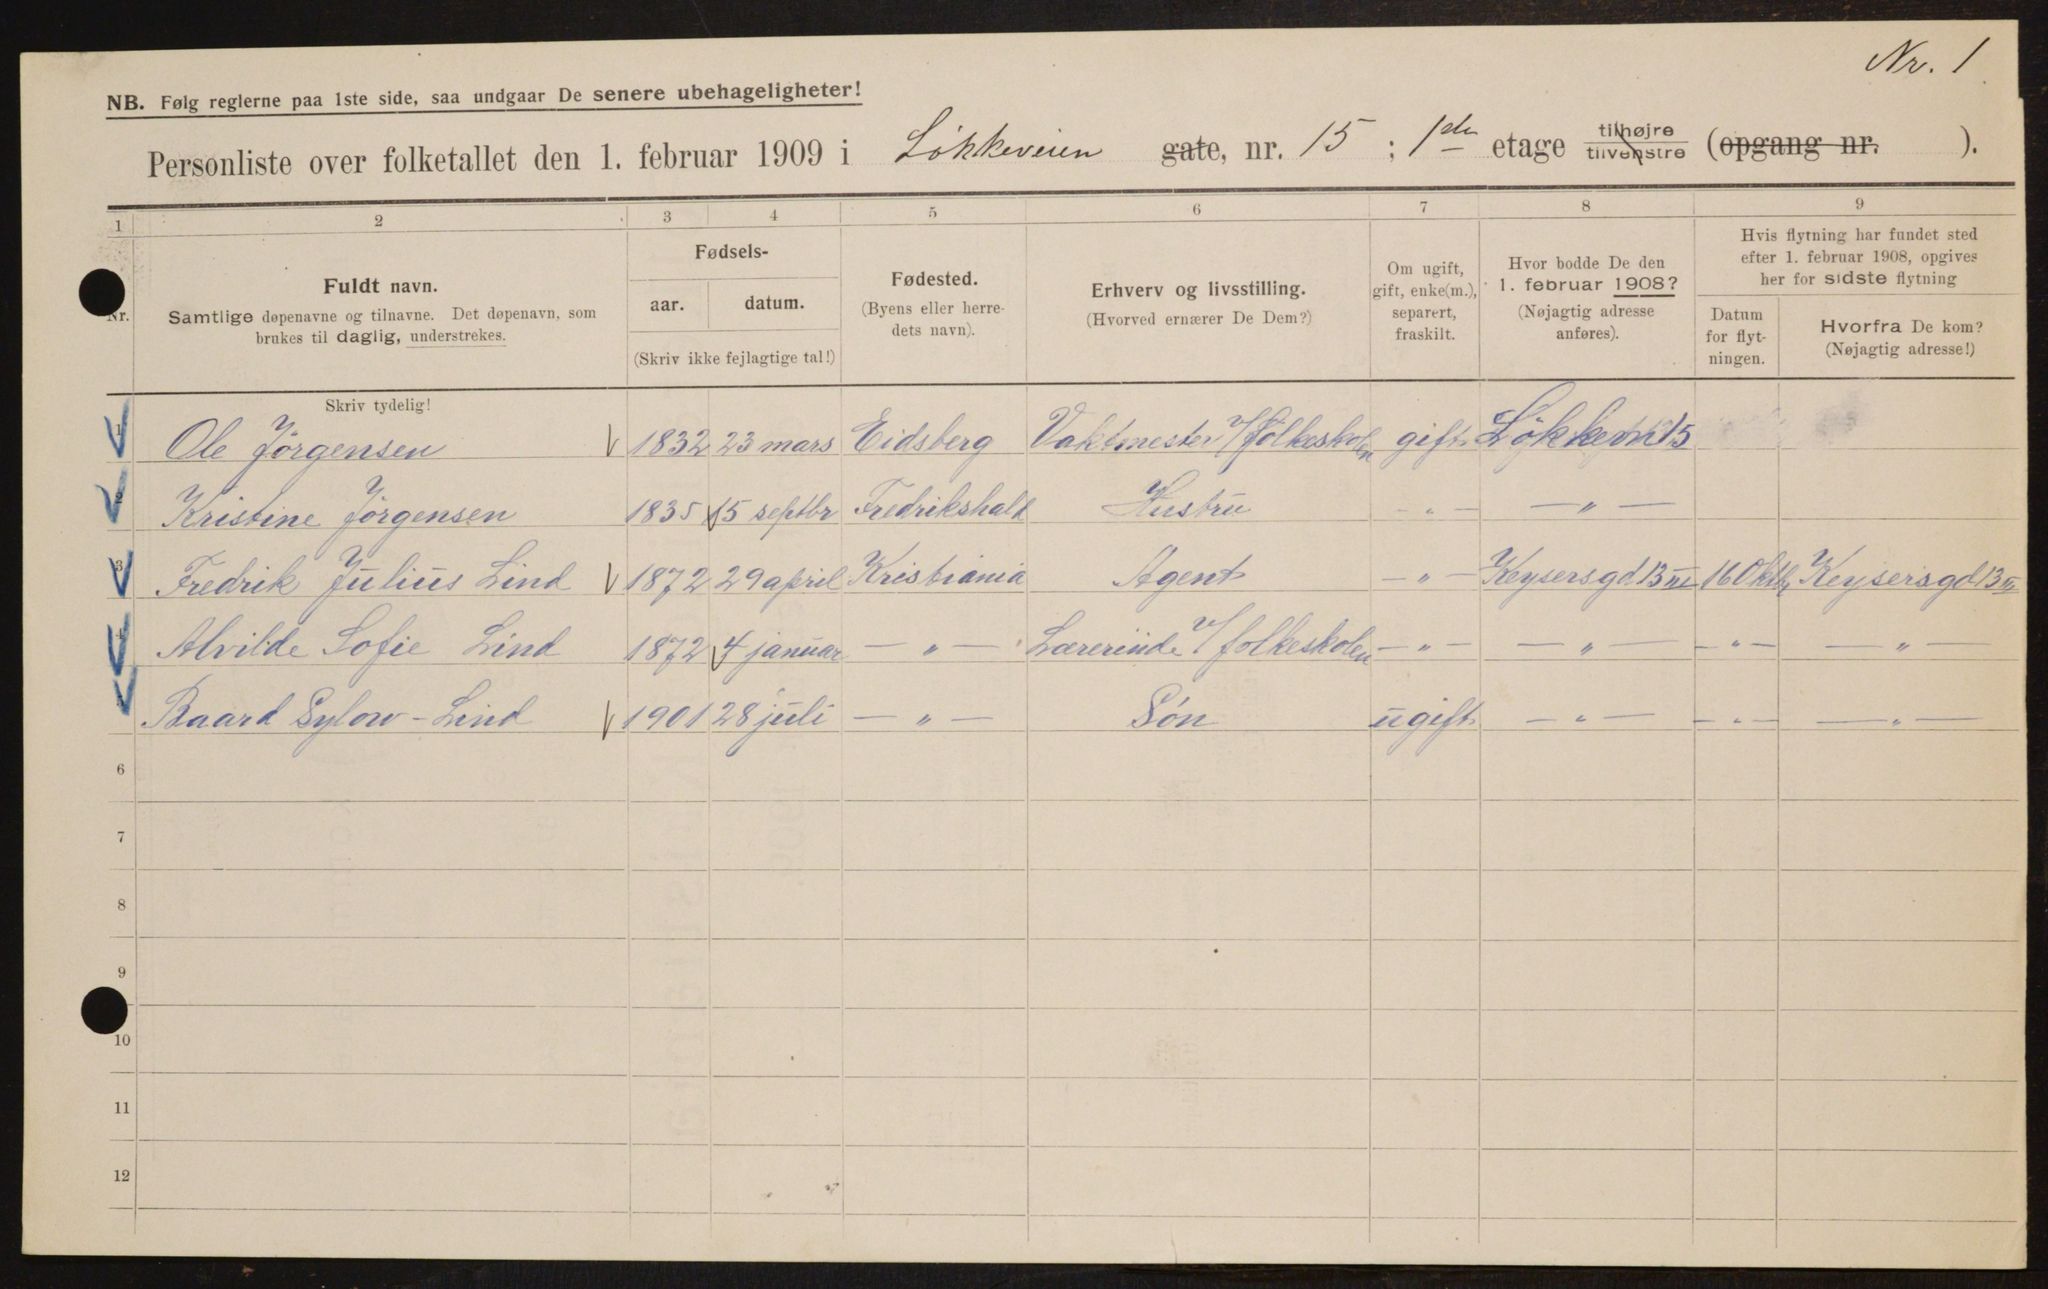 Nr. 1
NB. Følg reglerne paa 1ste side, saa undgaar De senere ubehageligheter!
Personliste over folketallet den 1. februar 1909 i Løkkeveien gate, nr. 15 ; 1ste etage tilhøjre tilvenstre (opgang nr. ).
1 2 3 4 5 6 7 8 9
Nr.
Fuldt navn.
Samtlige døpenavne og tilnavne. Det døpenavn, som
brukes til daglig, understrekes.
Skriv tydelig!
Fødsels-
aar. datum.
(Skriv ikke fejlagtige tal!)
Fødested.
(Byens eller herre-
dets navn).
Erhverv og livsstilling.
(Hvorved ernærer De Dem?)
Om ugift,
gift, enke(m.),
separert,
fraskilt.
Hvor bodde De den
1. februar 1908?
(Nøjagtig adresse
anføres).
Hvis flytning har fundet sted
efter 1. februar 1908, opgives
her for sidste flytning
Datum
for flyt-
ningen.
Hvorfra De kom?
(Nøjagtig adresse!)
1 Ole Jörgensen 1832 23 mars Eidsberg Vaktmester v/folkeskolen gift Løkkevn 15
2 Kristine Jörgensen 1835 15 septbr Fredrikshald Hustru — " — — " —
3 Fredrik Julius Lind 1872 29 april Kristiania Agent — " — Keysersgd 13 III 16 Oktb Keysersgd 13 III
4 Alvilde Sofie Lind 1872 4 januar — " — Lærerinde v/folkeskolen — " — — " — — " — — " —
5 Baard Sylow-Lind 1901 28 juli — " — Søn ugift — " — — " — — " —
6
7
8
9
10
11
12